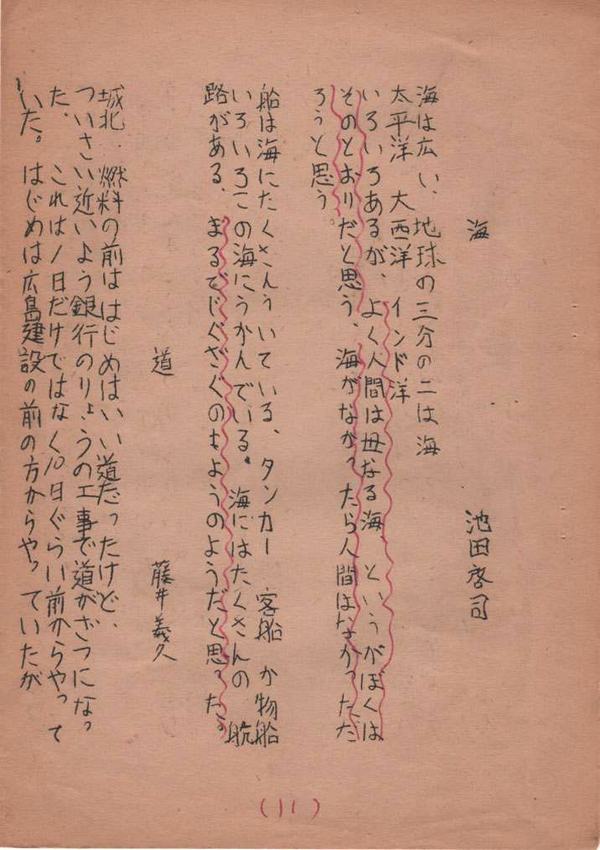 海
池田啓司
海は広い、地球の三分の二は海
太平洋 大西洋 インド洋
いろいろあるが、よく人間は母なる海、というがぼくは
そのとおりだと思う、海がなかったら人間はなかっただ
ろうと思う。
船は海にたくさんういている、タンカー 客船 か物船
いろいろこの海にうかんでいる。海にはたくさんの航
路がある、まるでじぐざぐのもようのようだと思った。
道
藤井義久
城北、燃料の前は はじめはいい道だったけど、
ついさい近いよう銀行のりょうの工事で道がざつになっ
た、 これは1日だけではなく10日ぐらい前からやって
いた。はじめは広島建設の前の方からやっていたが
(11)